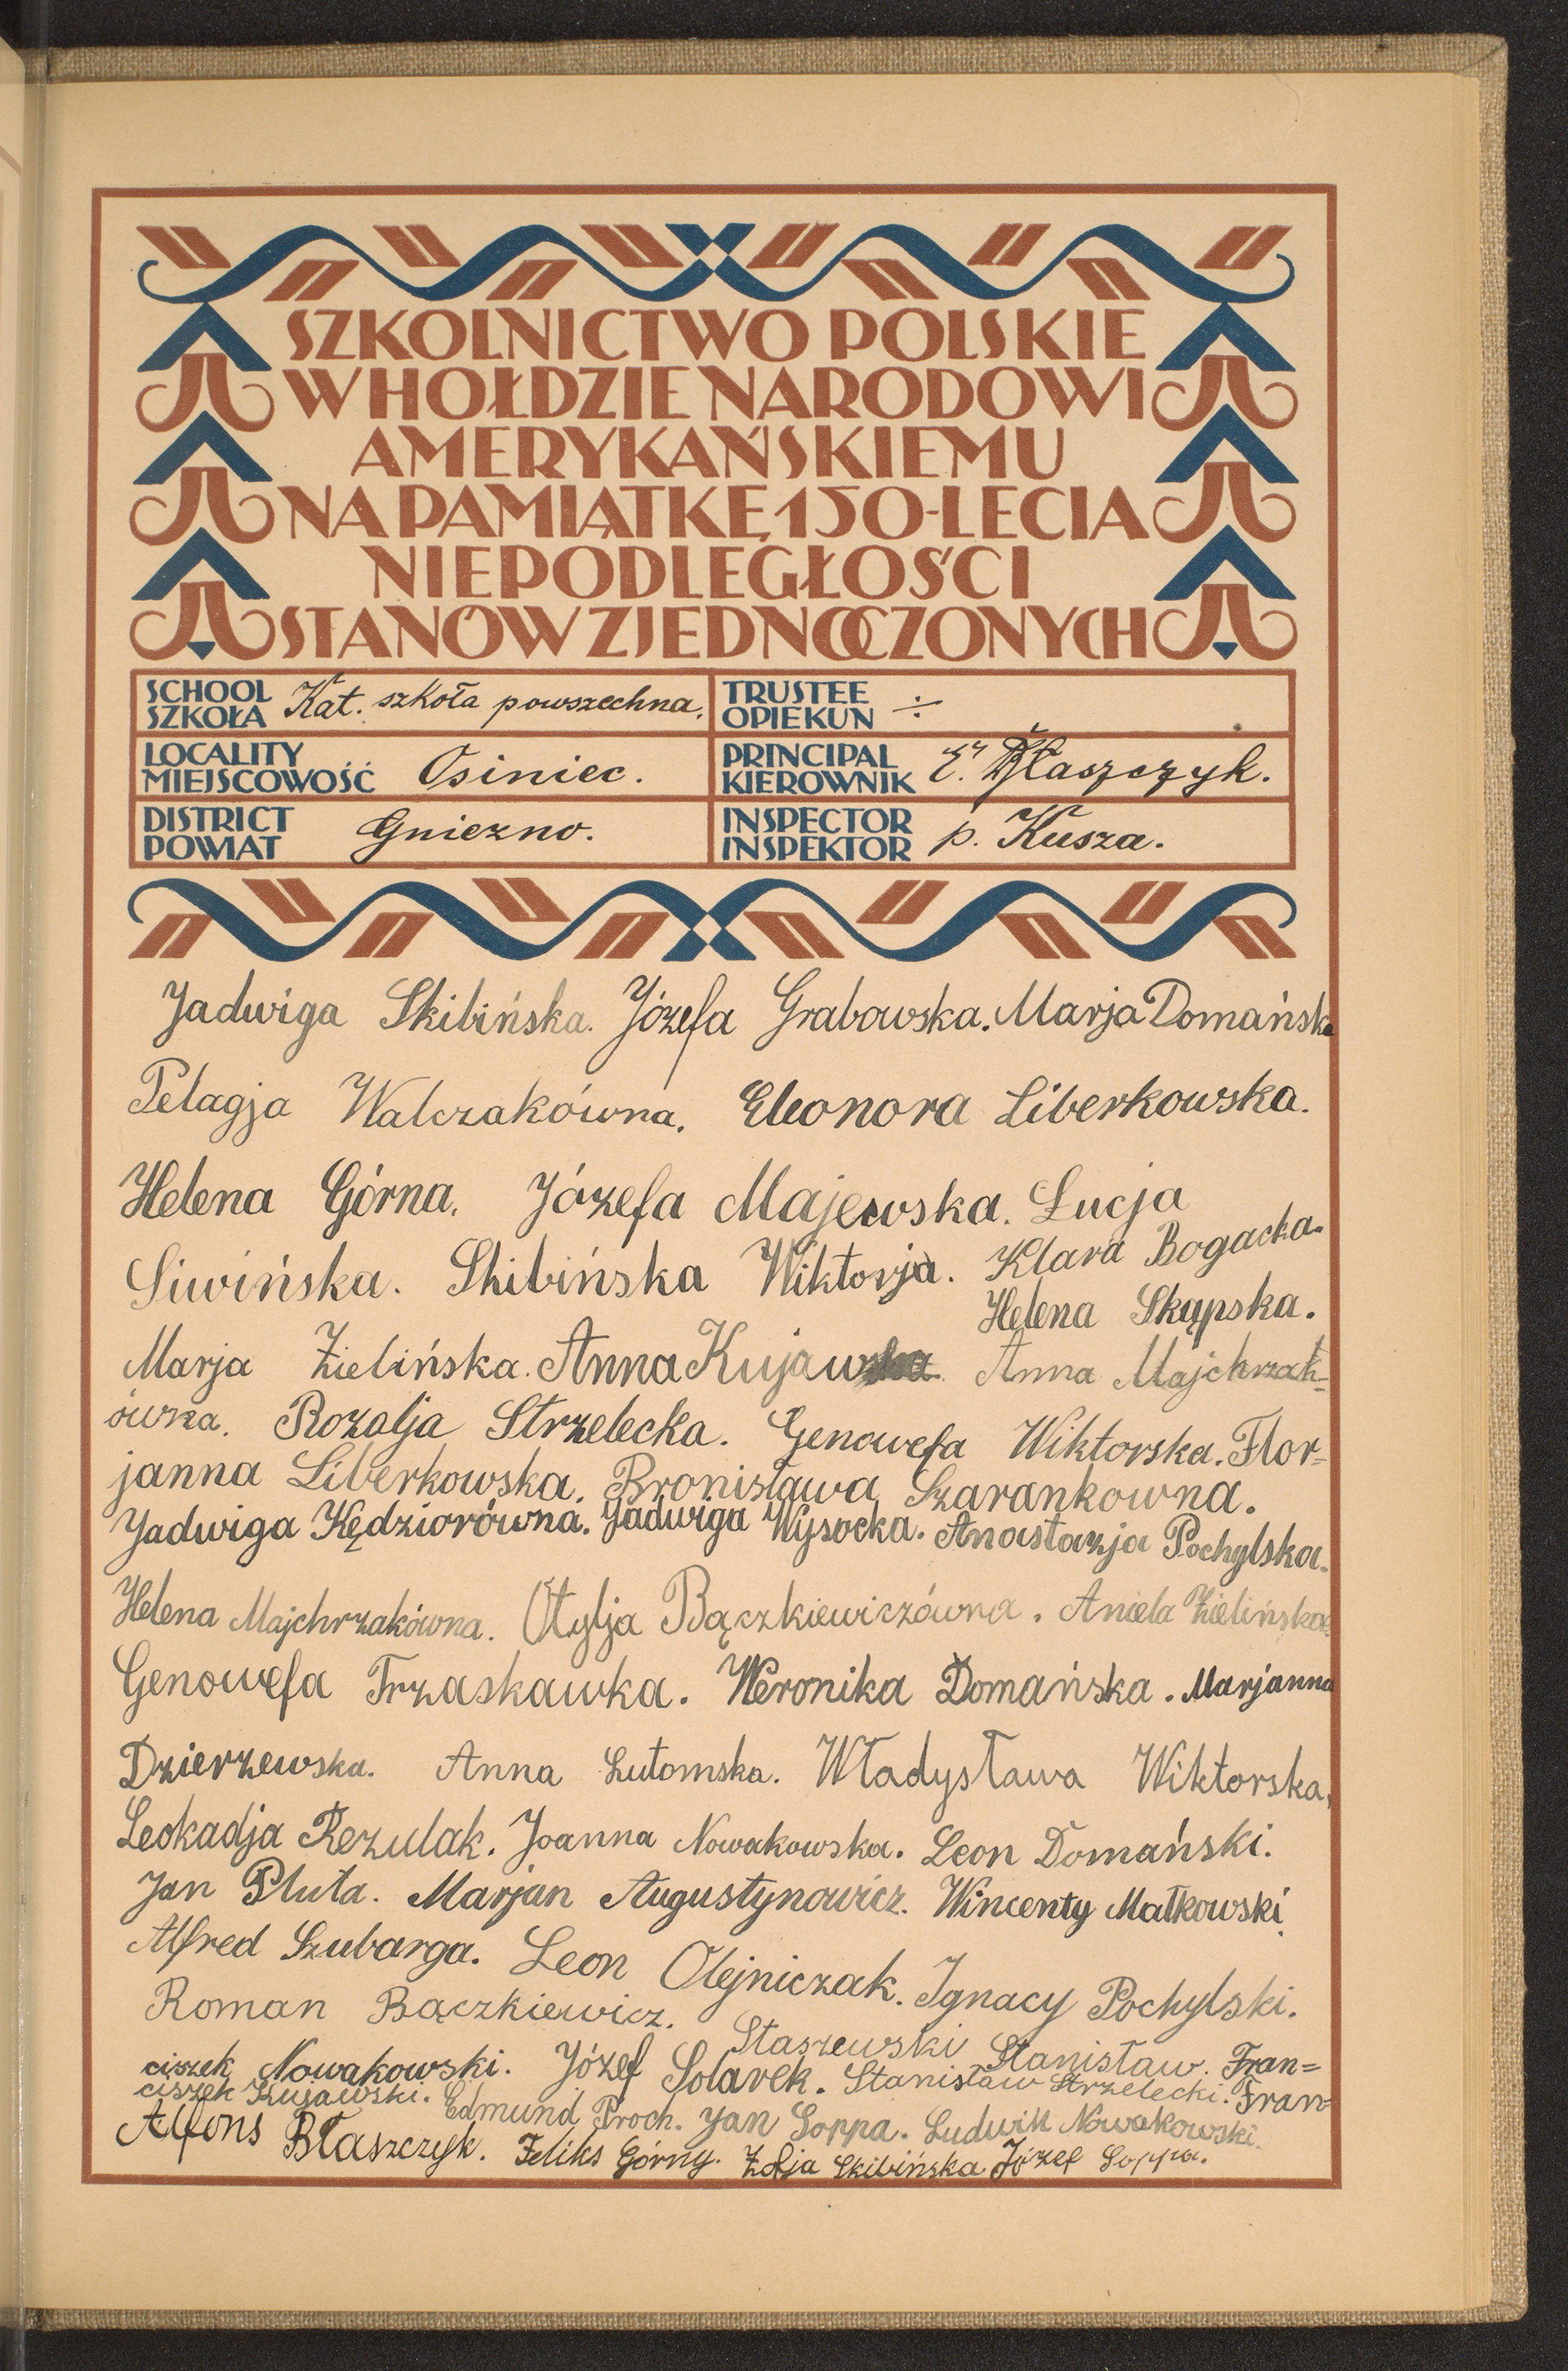 SZKOLNICTWO POLSKIE
W HOŁDZIE NARODOWI
AMERYKAŃSKIEMU
NA PAMIĄTKĘ 150-LECIA
NIEPODLEGŁOŚCI
STANÓW ZJEDNOCZONYCH
SCHOOL
SZKOŁA Kat. szkoła powszechna.
TRUSTEE
OPIEKUN ÷
LOCALITY
MIEJSCOWOŚĆ Osiniec.
PRINCIPAL
KIEROWNIK Błaszczyk.
DISTRICT
POWIAT Gniezno.
INSPECTOR
INSPEKTOR p. Kusza.
Jadwiga Skibińska. Józefa Grabowska. Marja Domańska
Pelagja Walczakówna. Eleonora Liberkowska.
Helena Górna. Józefa Majewska. Łucja
Siwińska. Skibińska Wiktorja. Klara Bogacka.
Helena Skąpska.
Marja Zielińska. Anna Kujawska. Anna Majchrzak-
ówna. Rozalja Strzelecka. Genowefa Wiktorska. Flor=
janna Liberkowska. Bronisława Szarankowna.
Jadwiga Kędziorówna. Jadwiga Wysocka. Anastazja Pochylska.
Helena Majchrzakówna. Otylja Bączkiewiczówna. Aniela Zielińska
Genowefa Trzaskawka. Weronika Domańska. Marjanna
Dzierzewska. Anna Lutomska. Władysława Wiktorska.
Leokadja Rezulak. Joanna Nowakowska. Leon Domański.
Jan Pluta. Marjan Augustynowicz. Wincenty Małkowski.
Alfred Szubarga. Leon Olejniczak. Ignacy Pochylski.
Roman Bączkiewicz. Staszewski Stanisław. Fran=
ciszek Nowakowski. Józef Solarek. Stanisław Strzelecki. Fran=
ciszek Kujawski. Edmund Proch. Jan Soppa. Ludwik Nowakowski.
Alfons Błaszczyk. Feliks Górny. Zofja Skibińska Józef Soppa.